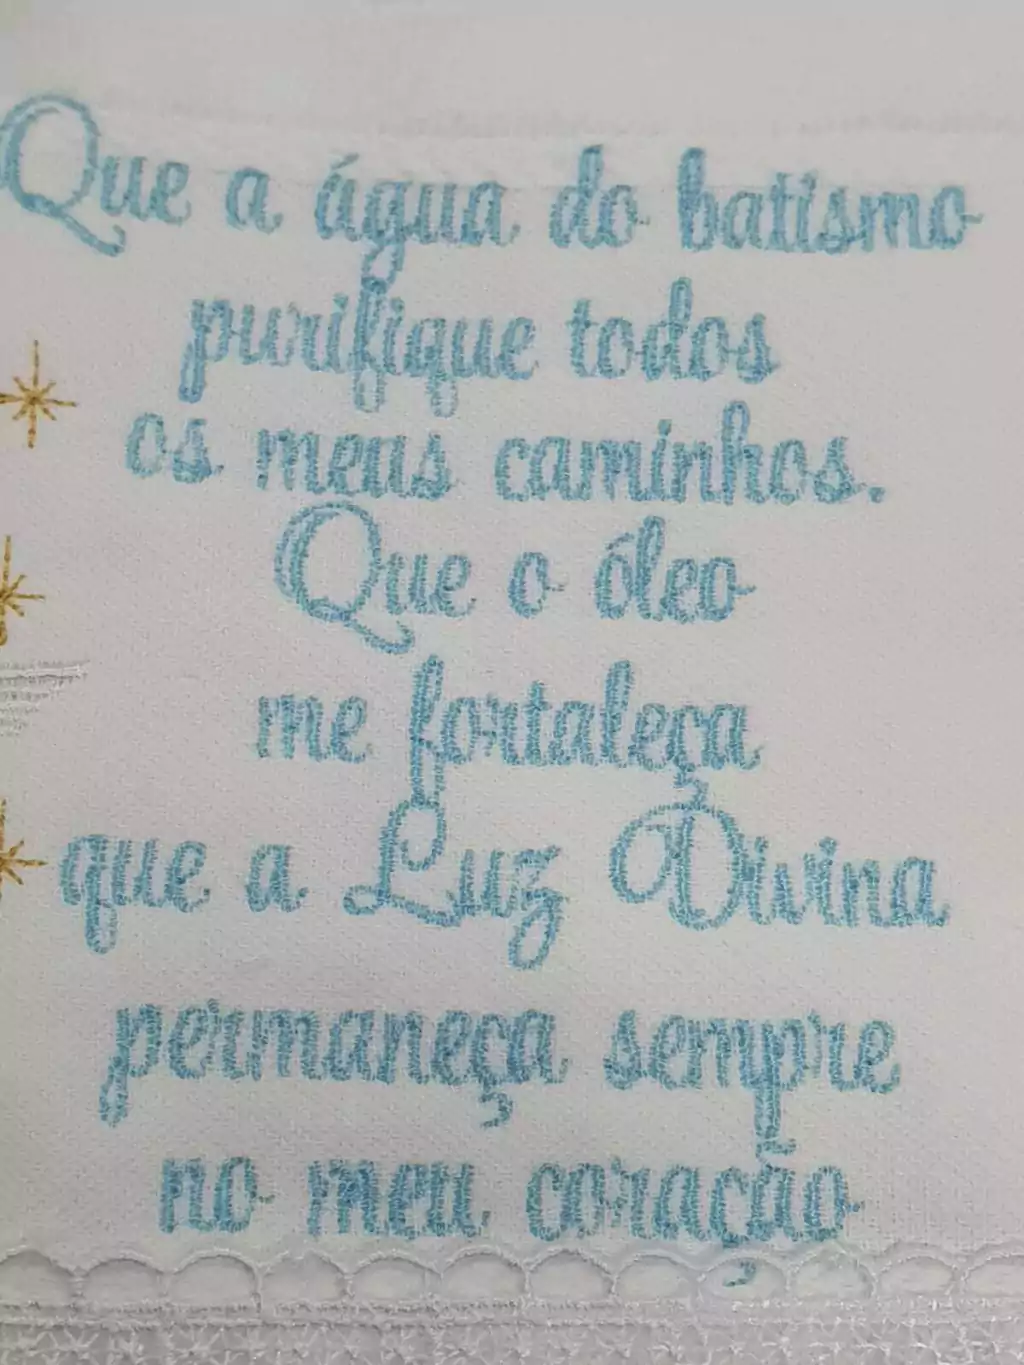 Que a água do batismo
purifique todos
os meus caminhos.
Que o óleo
me fortaleça
que a Luz Divina
permaneça sempre
no meu coração